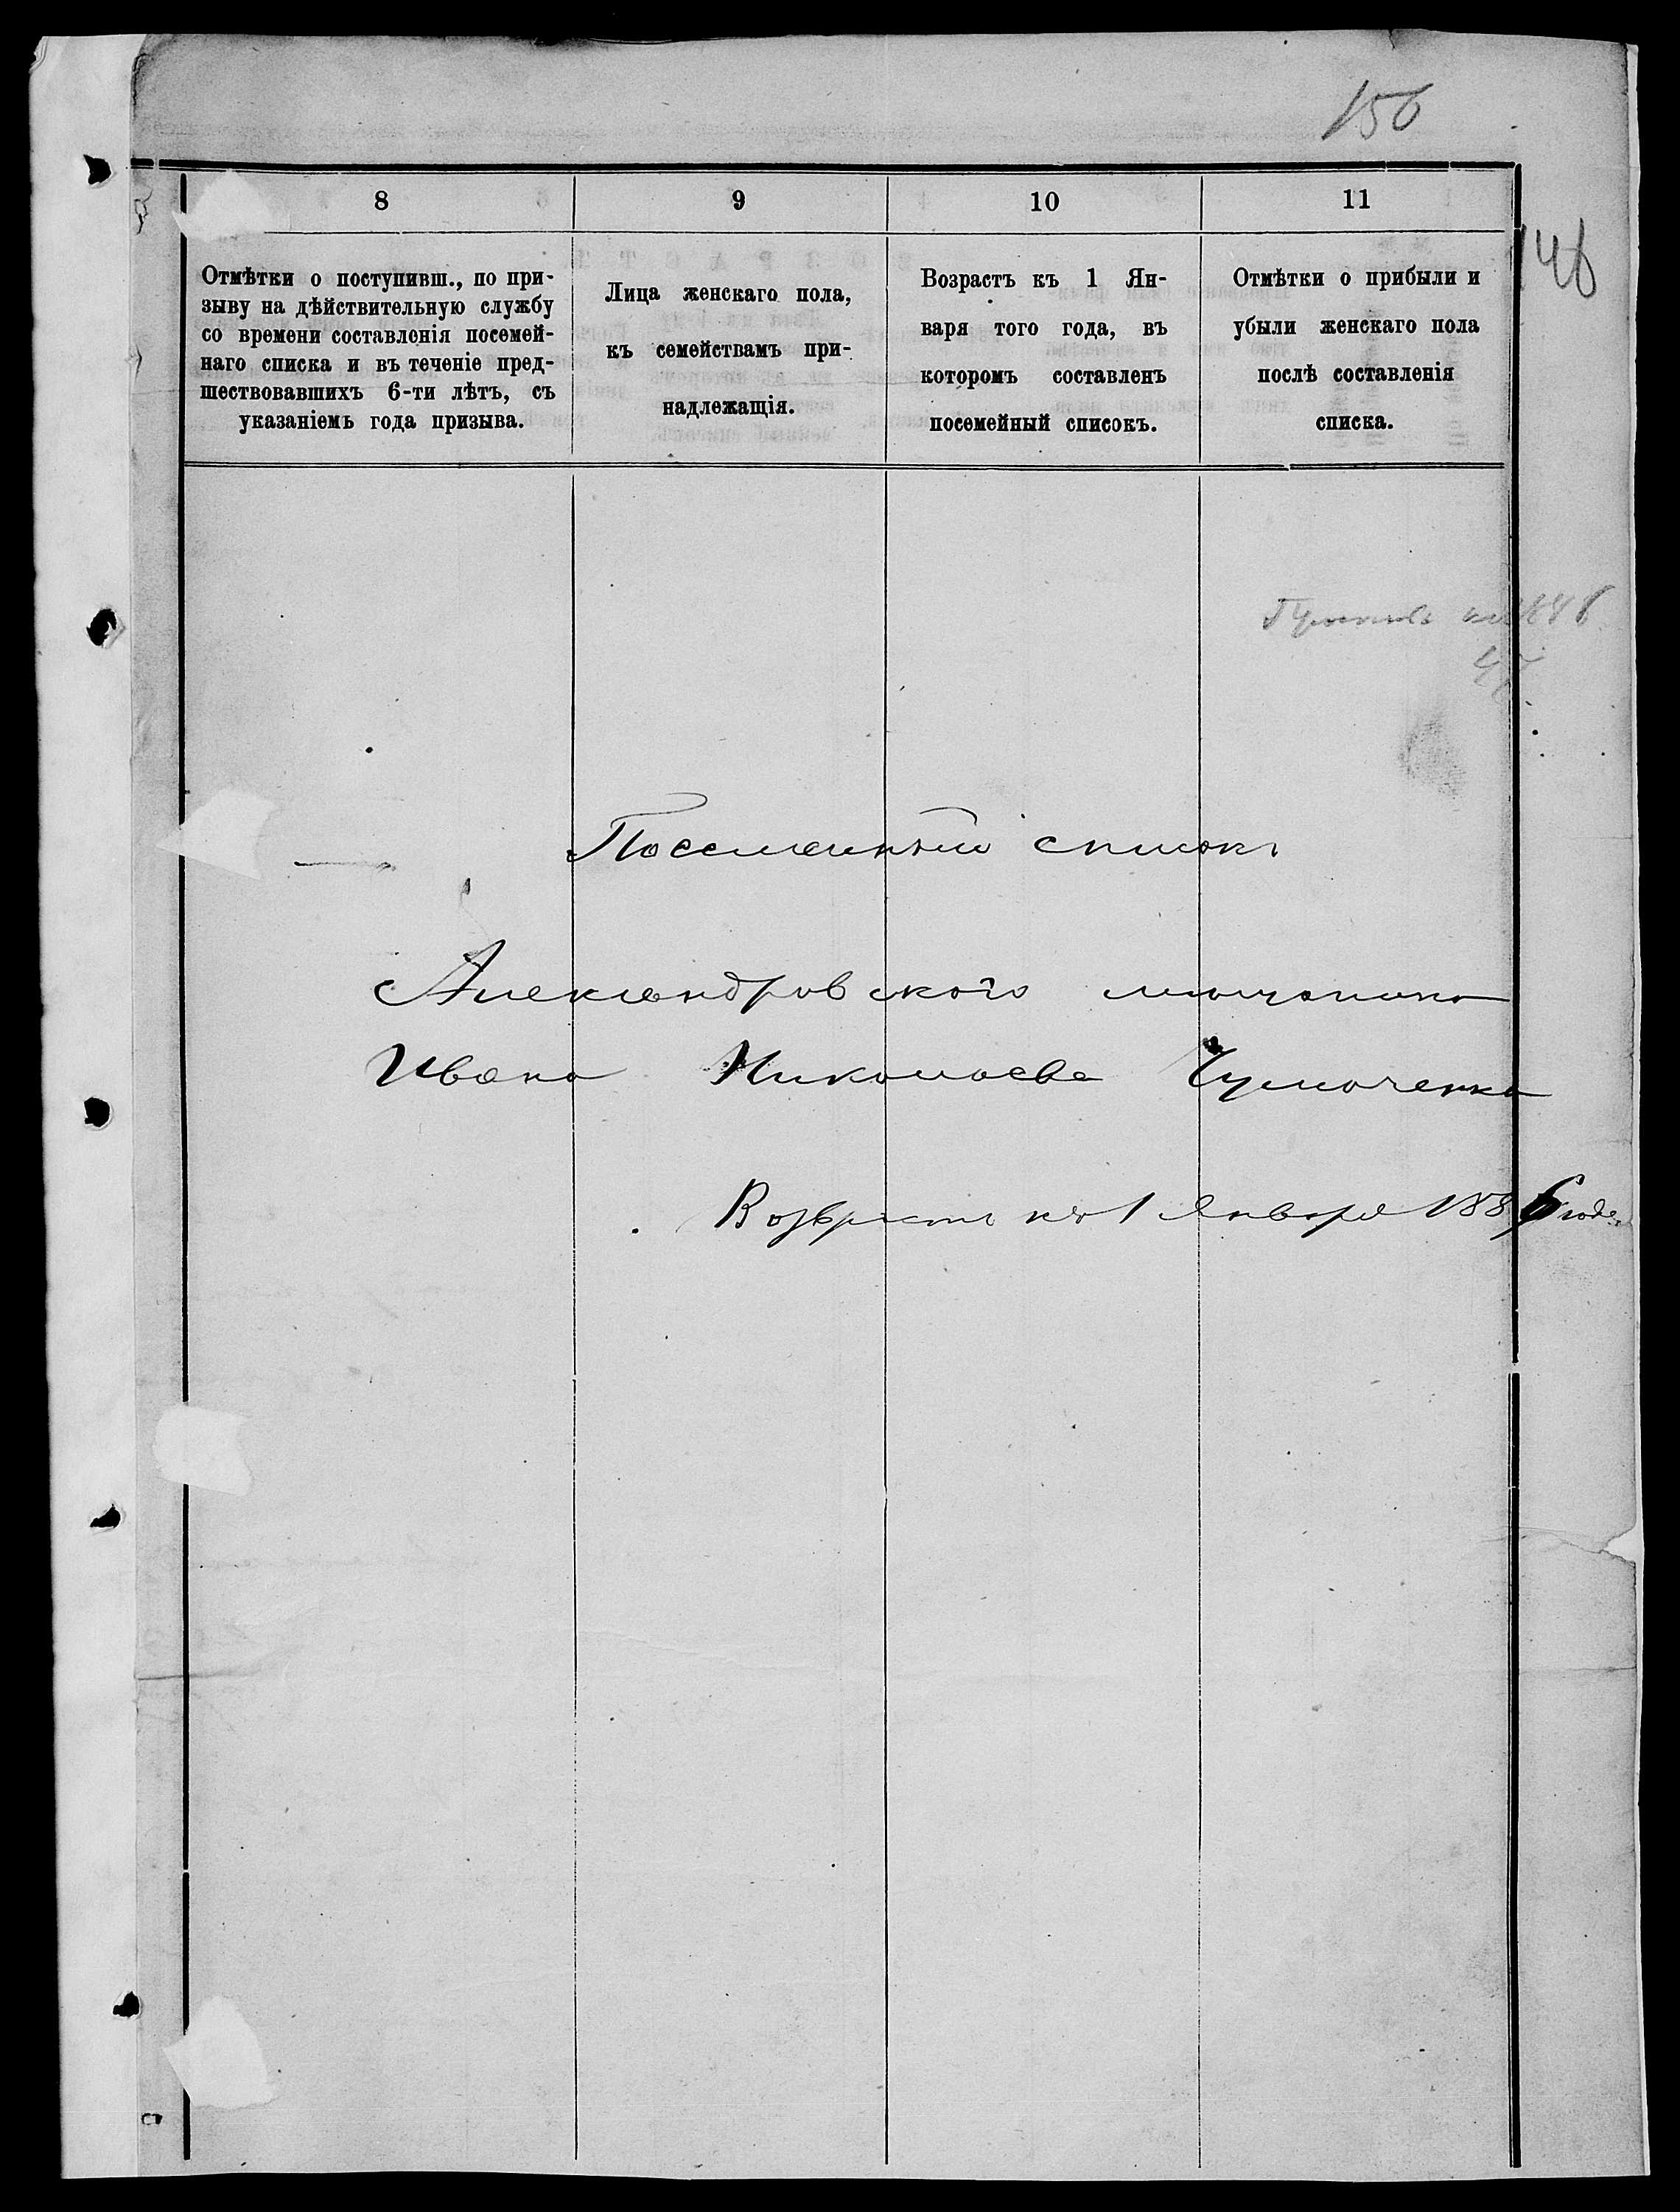 156
146
8
9
10
11
Отмѣтки о поступивш., по при-
зыву на дѣйствительную службу
со времени составленія посемей-
наго списка и въ теченіе пред-
шествовавшихъ 6-ти лѣтъ, съ
указаніемъ года призыва.
Лица женскаго пола,
къ семействамъ при-
надлежащія.
Возрастъ къ 1 Ян-
варя того года, въ
которомъ составленъ
посемейный списокъ.
Отмѣтки о прибыли и
убыли женскаго пола
послѣ составленія
списка.
Посемейный списокъ
Александровского мѣщанина
Ивана Николаева Чумаченка
Возврастъ къ 1 Января 1886 года